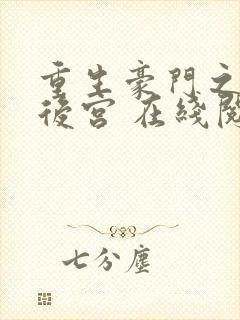 重生豪門之
後宮 在綫閱
七分塵